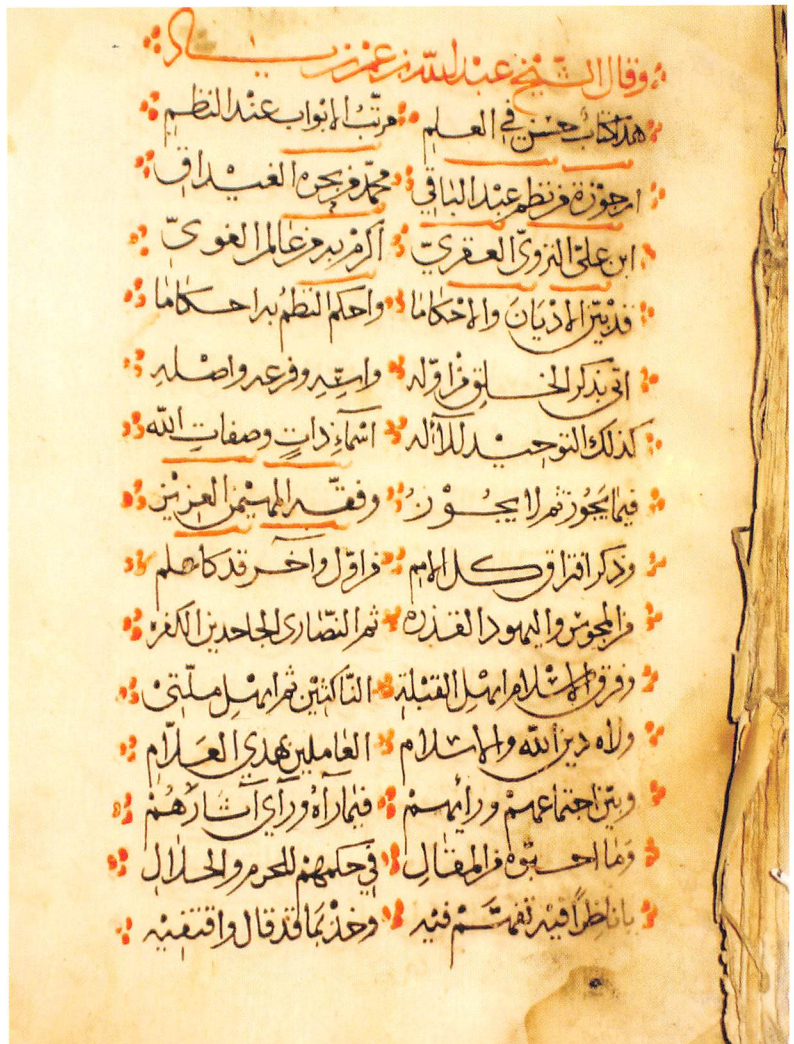 وقال الشيخ عبد الله بن عمر بن زياد
هذا كتاب حسن في العلم مرتب الابواب عند النظم
ارجوزة من نظم عبد الباقي محمد من بحره الغيداق
ابن علي النزوي العقري اكرم به من عالم الغوي
قد بين الاديان والاحكاما واحكم النظم به احكاما
اتى بذكر الخلق من اوله واسه وفرعه واصله
كذلك التوحيد للاله اسماء ذات وصفات الله
فيما يجوز ثم لا يجوز وفقه المهيمن العزيز
وذكر افتراق كل الامم من اول وآخر قد كا علم
من المجوس واليهود القذره ثم النصارى الجاحدين الكفره
وفرق الاسلام اهل القبلة الناكثين ثم اهل ملتي
ولاه دين الله والاسلام العاملين بهدي العلام
وبين اجتماعهم ورائهم فيما رآه ورأي آثارهم
وما احبوه من المقال في حكمهم للحرم والحلال
يا ناظرا فيه تفهم فيه وخذ بما قد قال واقتفيه